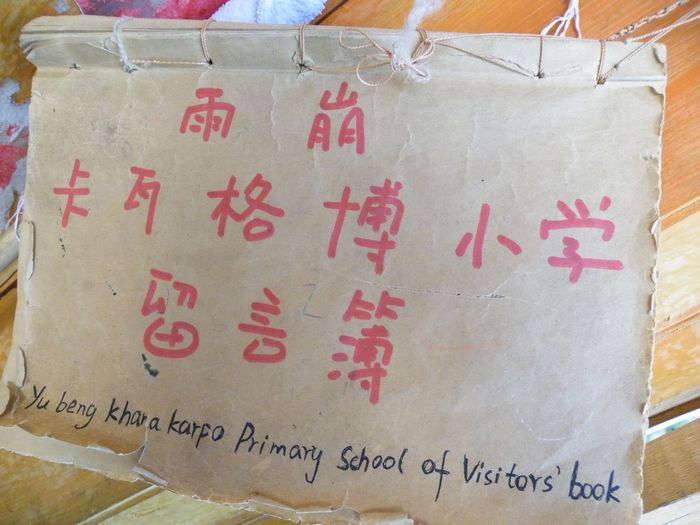 雨崩
卡瓦格博小学
留言簿
Yu beng khara karpo Primary School of Visitors' book